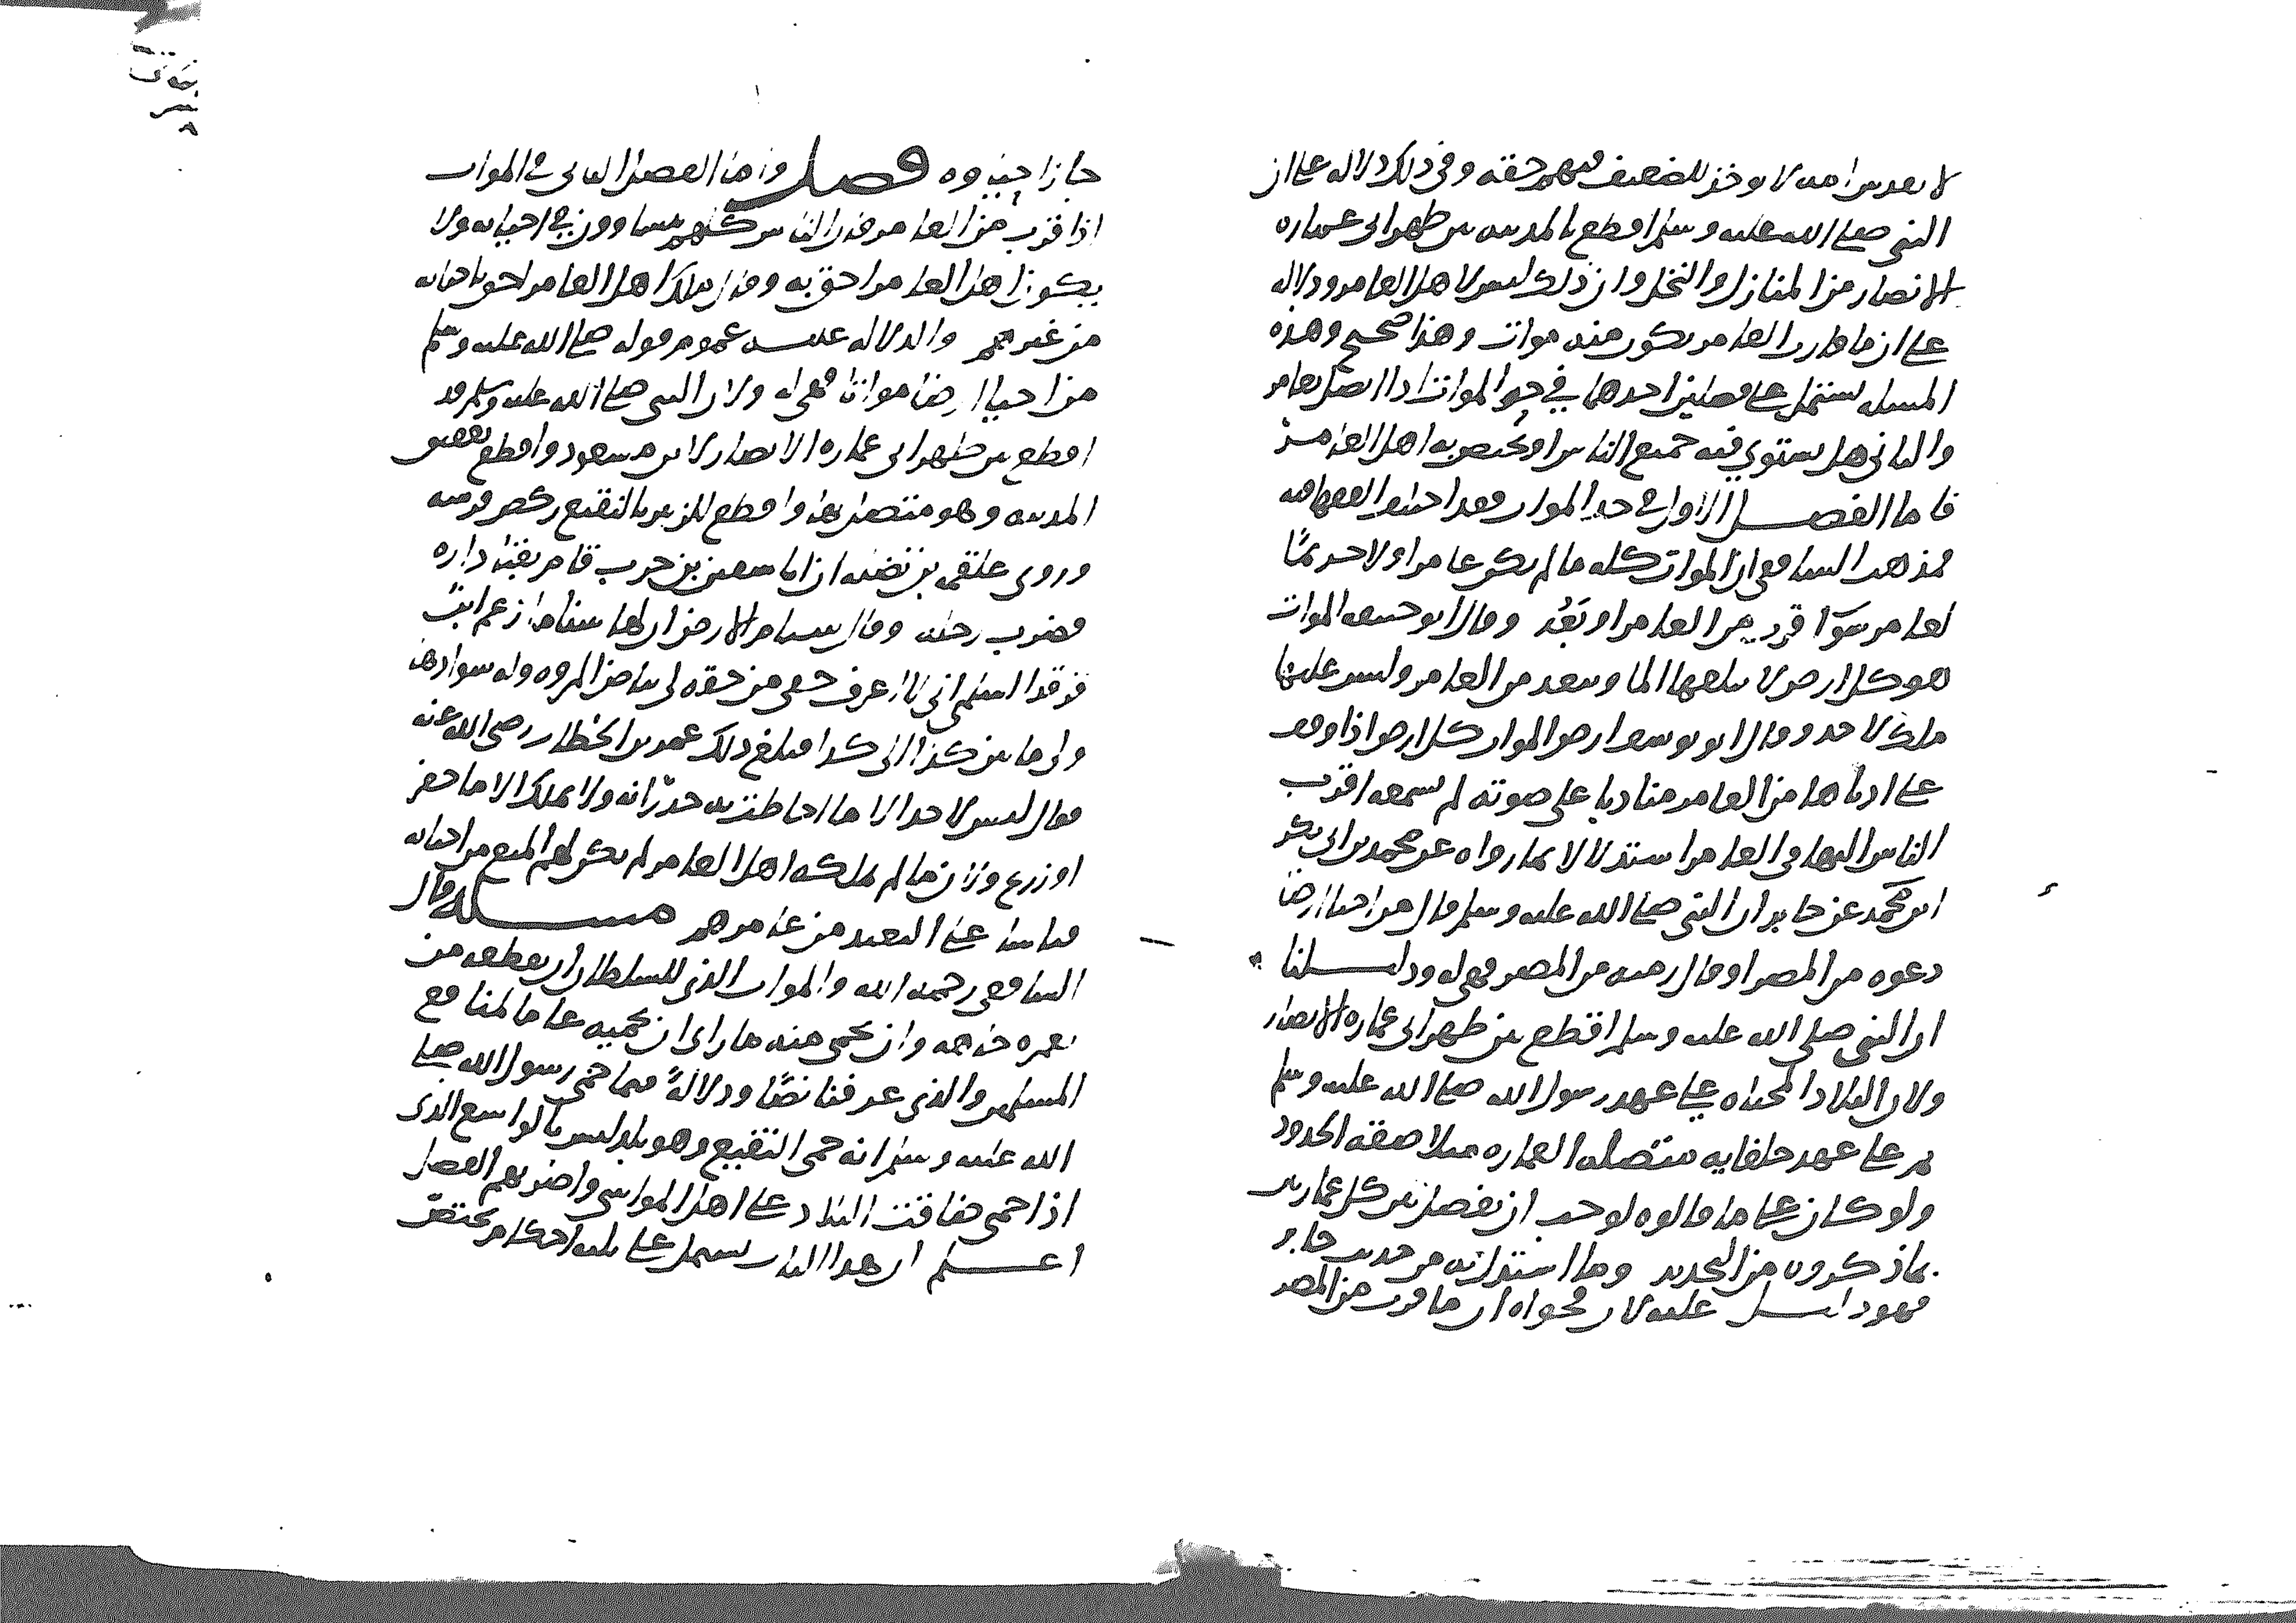 لا يقدس امة لا يوخذ للضعيف فيهم حقه وفي ذلك دلالة على ان
النبي صلى الله عليه وسلم اقطع بالمدينة بين ظهراني عمارة
الانصار من المنازل والنخل وان ذلك ليس لاهل العامر ودلالة
على ان ما قارب العامر يكون منه موات وهذا صحيح وهذه
المسلة تشتمل على فصلين احدهما في حد الموات اذا اتصل بعامر
والثاني هل يستوي فيه جميع الناس او يختص به اهل العامر
فاما الفصل الاول في حد الموات فقد اختلف الفقهاء فيه
فمذهب الشافعي ان الموات كله ما لم يكن عامرا ولا حريما
لعامر سوا قرب من العامر او بعد وقال ابو حنيفة الموات
هو كل ارض لا يبلغها الما وتبعد من العامر وليس عليها
ملك لاحد وقال ابو يوسف ارض الموات كل ارض اذا وقف
على ادناها من العامر مناديا على صوته لم يسمعه اقرب
الناس اليها في العامر استدلالا بما رواه عن محمد بن ابي بكر
ابن محمد عن جابر ان النبي صلى الله عليه وسلم قال من احيا ارضا
دعوة من المصر او قال رمية من المصر فهي له ودليلنا
ان النبي صلى الله عليه وسلم اقطع بين ظهراني عمارة الانصار
ولان البلاد المحياة على عهد رسول الله صلى الله عليه وسلم
ثم على عهد خلفايه متصلة العمارة متلاصقة الحدود
ولو كان على ما قالوه لوجب ان يفصل بين كل عمارتين
بما ذكروه من التحديد وما استدل به من حديث جابر
فهو دليل عليه لان فحواه ان ما قرب من المصر
جاز احياوه فصل واما الفصل الثاني في الموات
اذا قرب من العامر فان الناس كلهم يتساوون في احيايه ولا
يكون اهل العامر احق به وقال مالك اهل العامر احق باحيايه
من غيرهم والدلالة عليه عموم قوله صلى الله عليه وسلم
من احيا ارضا مواتا فهي له ولان النبي صلى الله عليه وسلم قد
اقطع بين ظهراني عمارة الانصار لابن مسعود واقطع بعقيق
المدينة وهو متصل بها واقطع للزبير بالنقيع ركض فرسه
وروى علقمة بن نضلة ان ابا سفين بن حرب قام بفنا داره
فضرب برجله وقال سنام الارض ان لها سناما زعم ابن
فرقد السلمي اني لا اعرف حقي من حقه لي بياض المروة وله سوادها
ولي ما بين كذا الى كذا فبلغ ذلك عمر بن الخطاب رضي الله عنه
فقال ليس لاحد الا ما احاطت به جدرانه ولا يملك الا ما حفر
او زرع ولان ما لم يملكه اهل العامر لم يكن لهم المنع من احيايه
قياسا على البعيد من عامرهم مسلة قال
الشافعي رحمه الله والموات الذي للسلطان ان يقطعه من
يعمره خاصة وان يحمي منه ما راى ان يحميه عاما لمنافع
المسلمين والذي عرفنا نصا ودلالة فيما حمى رسول الله صلى
الله عليه وسلم انه حمى النقيع وهو بلد ليس بالواسع الذي
اذا حمي ضاقت البلاد على اهل المواشي واضر بهم الفصل
اعلم ان هذا الباب يشتمل على ثلثة احكام يختص